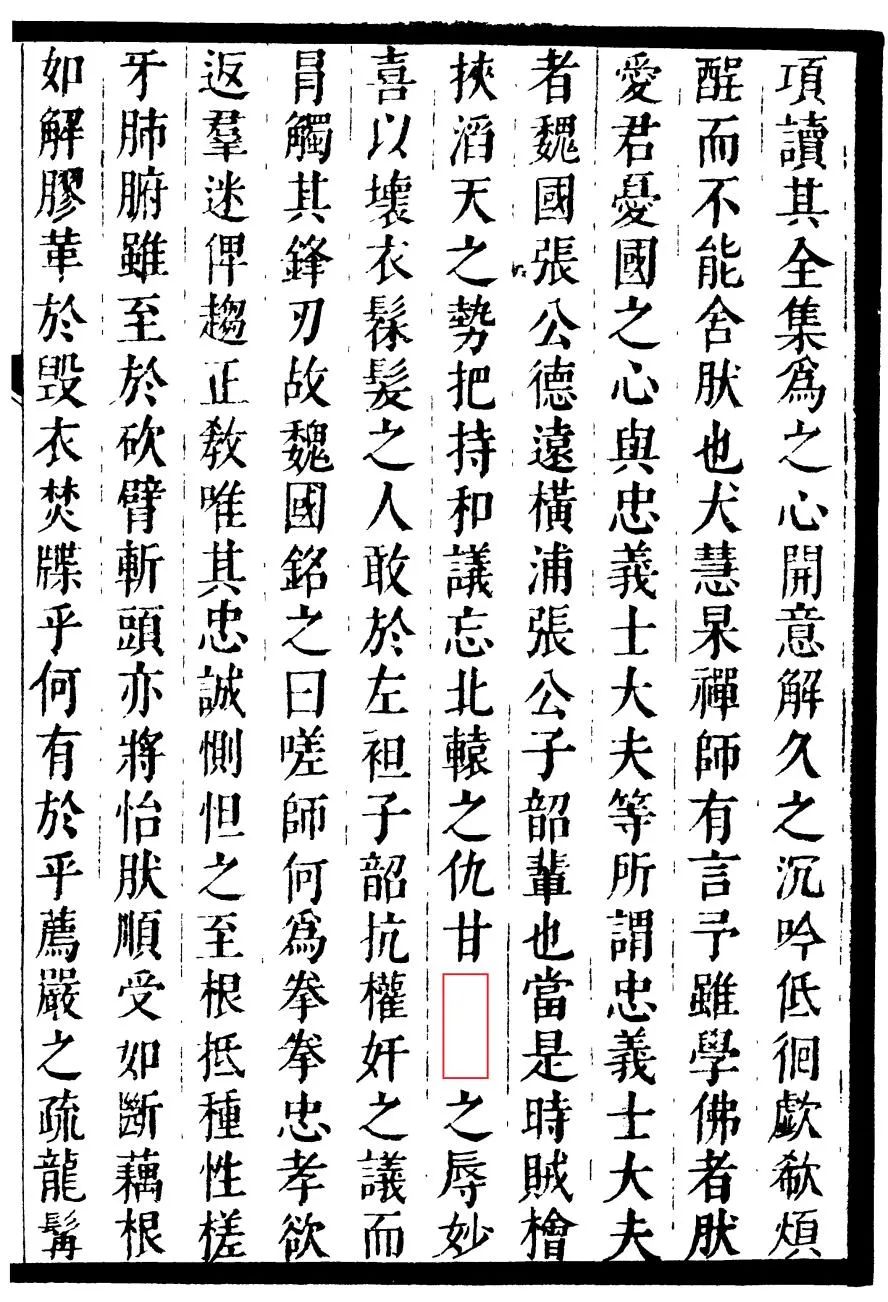 項讀其全集爲之心開意解久之沉吟低徊歔欷煩
酲而不能舍肰也犬慧杲禪師有言予雖學佛者肰
愛君憂國之心與忠義士大夫等所謂忠義士大夫
者魏國張公德遠橫浦張公子韶輩也當是時賊檜
挾滔天之勢把持和議忘北轅之仇甘之辱妙
喜以壞衣髹髪之人敢於左袒子韶抗權奸之議而
冐觸其鋒刃故魏國銘之曰嗟師何爲拳拳忠孝欲
返羣迷俾趨正教唯其忠誠惻怛之至根抵種性槎
牙肺腑雖至於砍臂斬頭亦將怡肰順受如斷藕根
如解膠革於毀衣焚牒乎何有於乎薦嚴之疏龍髯